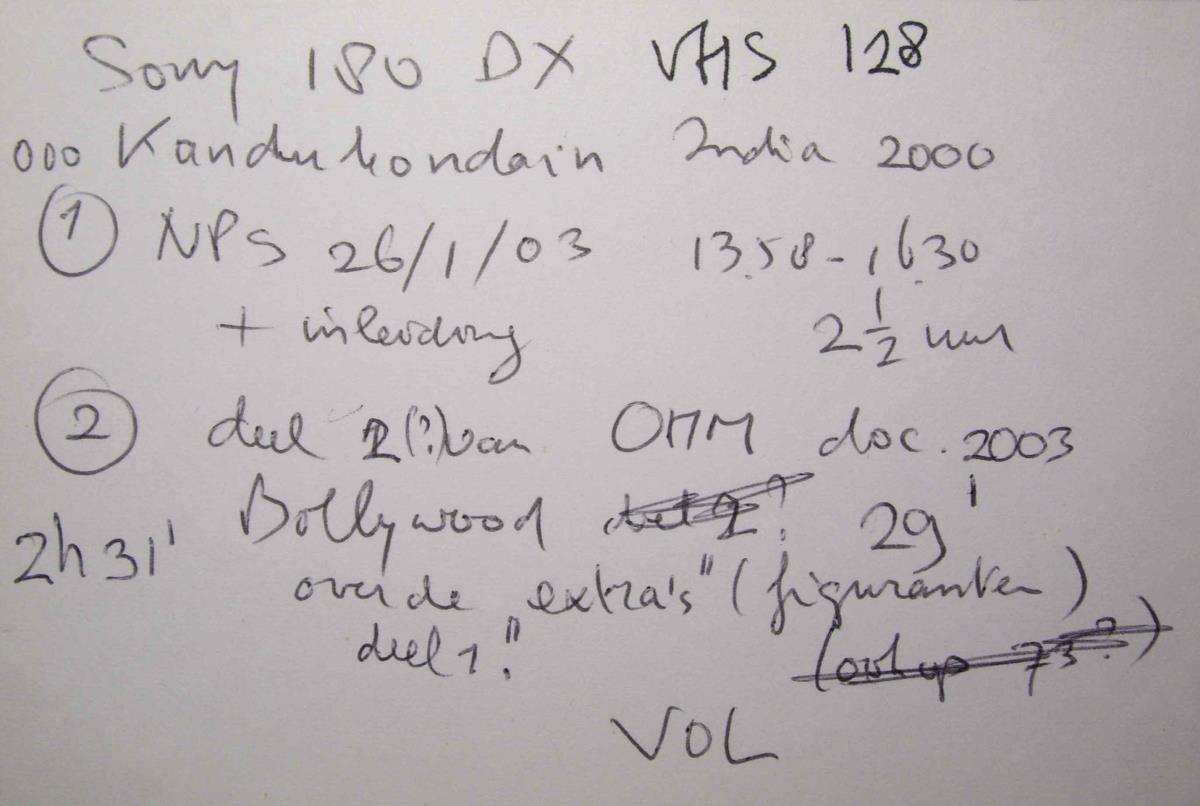 Sony 180 DX VHS 128
000 Kandukondain India 2000
1 NPS 26/1/03 13.58-16.30
+ inleiding 2 1/2 uur
2 deel 2(?) van OHM doc. 2003
Bollywood deel 2? 29'
2h31'
over de "extra's" (figuranten)
deel 1?
(ook op 73?)
VOL